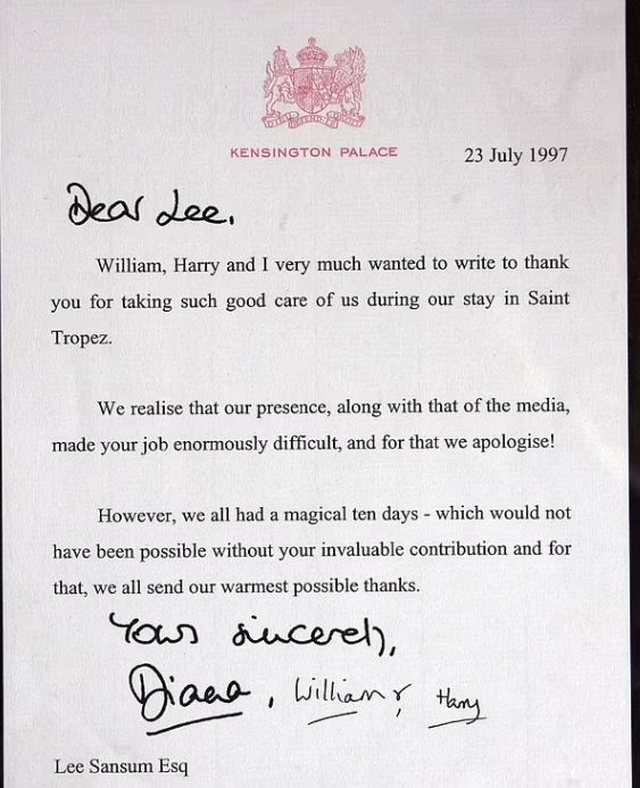 KENSINGTON PALACE
23 July 1997
Dear Lee,
William, Harry and I very much wanted to write to thank
you for taking such good care of us during our stay in Saint
Tropez.
We realise that our presence, along with that of the media,
made your job enormously difficult, and for that we apologise!
However, we all had a magical ten days - which would not
have been possible without your invaluable contribution and for
that, we all send our warmest possible thanks.
Yours sincerely,
Diana, William &, Harry
Lee Sansum Esq